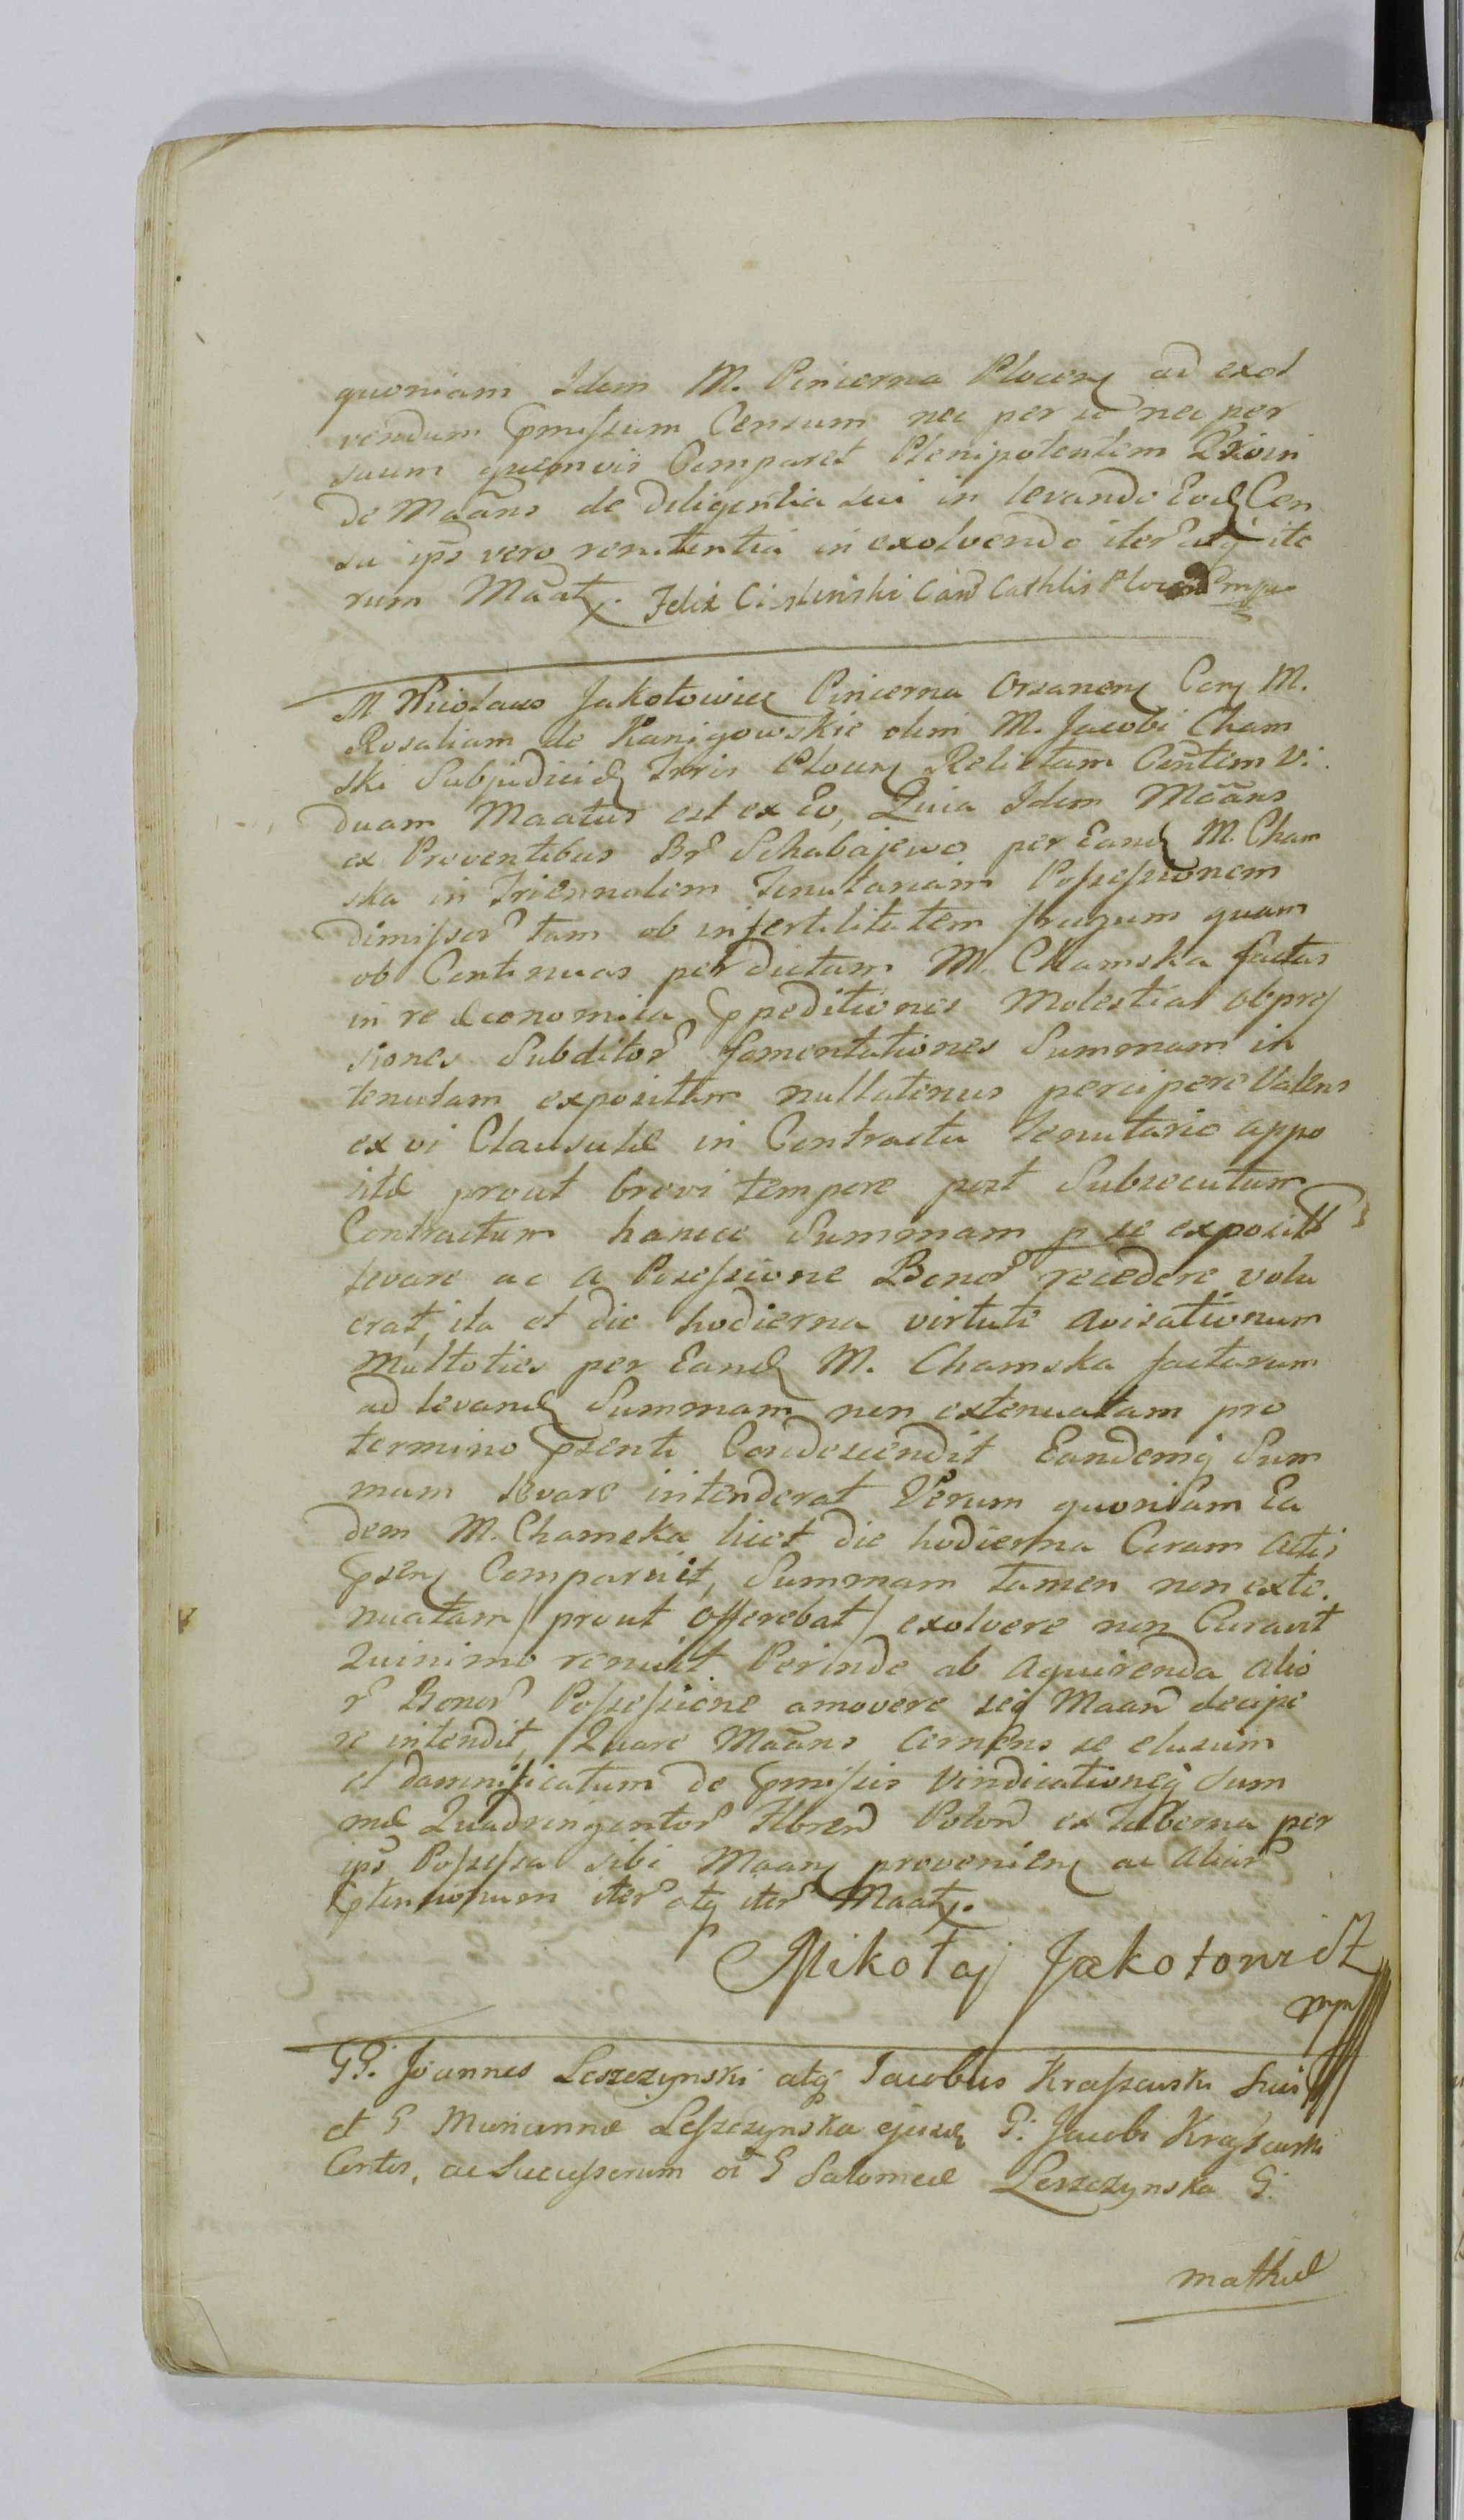 quoniam Idem M. Pincerna Plocen ad exol
vendum pmissum Censum nec per se nec per
suum quemvis Comparet Plenipotentem Proin
de Maans de diligentia sui in levando Eod Cen
su ips vero renitentia in exolvendo iter atq ite
rum Maat. Felix Cisluński Can Cathlis Plocen mpa
M Nicolaus Jakotowicz Pincerna Orsanen Con M.
Rosaliam de Kanigowskie olim M. Jacobi Cham
ski Subjudicis Trris Plocen Relictam Contem Vi
duam Maatus est ex Eo, Quia Idem Maans
ex Proventibus Br Schabajewo per Eand M. Cham
ska in Triennalem Tenutariam Possessionem
dimissor tam ob infertilitatem frugum quam
ob Continuas per dictam M. Chamska factas
in re Economica ppeditiones Molestias obpres
siones Subditor fomentationes Summam in
tenutam expositam nullatenus percipere Valens
ex vi Clausulæ in Contractu Tenutario appo
sitæ prout brevi tempore post Subsecutum
Contractum hancce Summam p se exposit
levare ac a Possessione Bonor recedere volu
erat, ita et die hodierna virtute avisationum
Multoties per Eand M. Chamska factarum
ad levand Summam non extenuatam pro
termino psenti Condescendit Eandemq Sum
mam levare intenderat Verum quoniam Ea
dem M. Chamska licet die hodierna Coram Actis
psen Comparuit, Summam tamen non exte
nuatam / prout offerebat / exolvere non Curavit
Quinimo renuit Perinde ab Aquirenda alio
r Bonor Possessione amovere seq Maan decipe
re intendit, Quare Maans Cernens se elusum
et damnificatum de pmissis Vindicationeq Sum
mæ Quadringentor Floren Polon ex Taberna per
ips Possessa sibi Maan provenien ac Aliar
ptensionum iter atq iter Maat.
Mikołaj Jakotowicz
mp
GG. Joannes Leszczynski atq Jacobus Kraszewski Suis
et G Mariannæ Leszczynska ejusd G. Jacobi Kraszewski
Contis, ac Successorum oi G Salomeæ Leszczynska G.
mathiæ